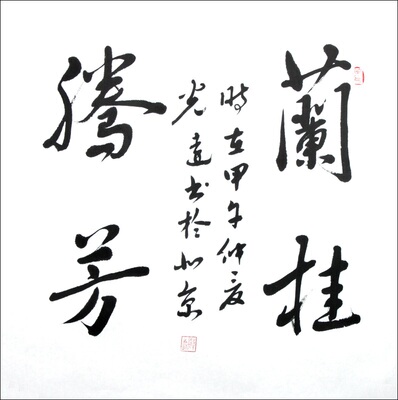 蘭桂
騰芳
時在甲午仲夏
光達書於北京